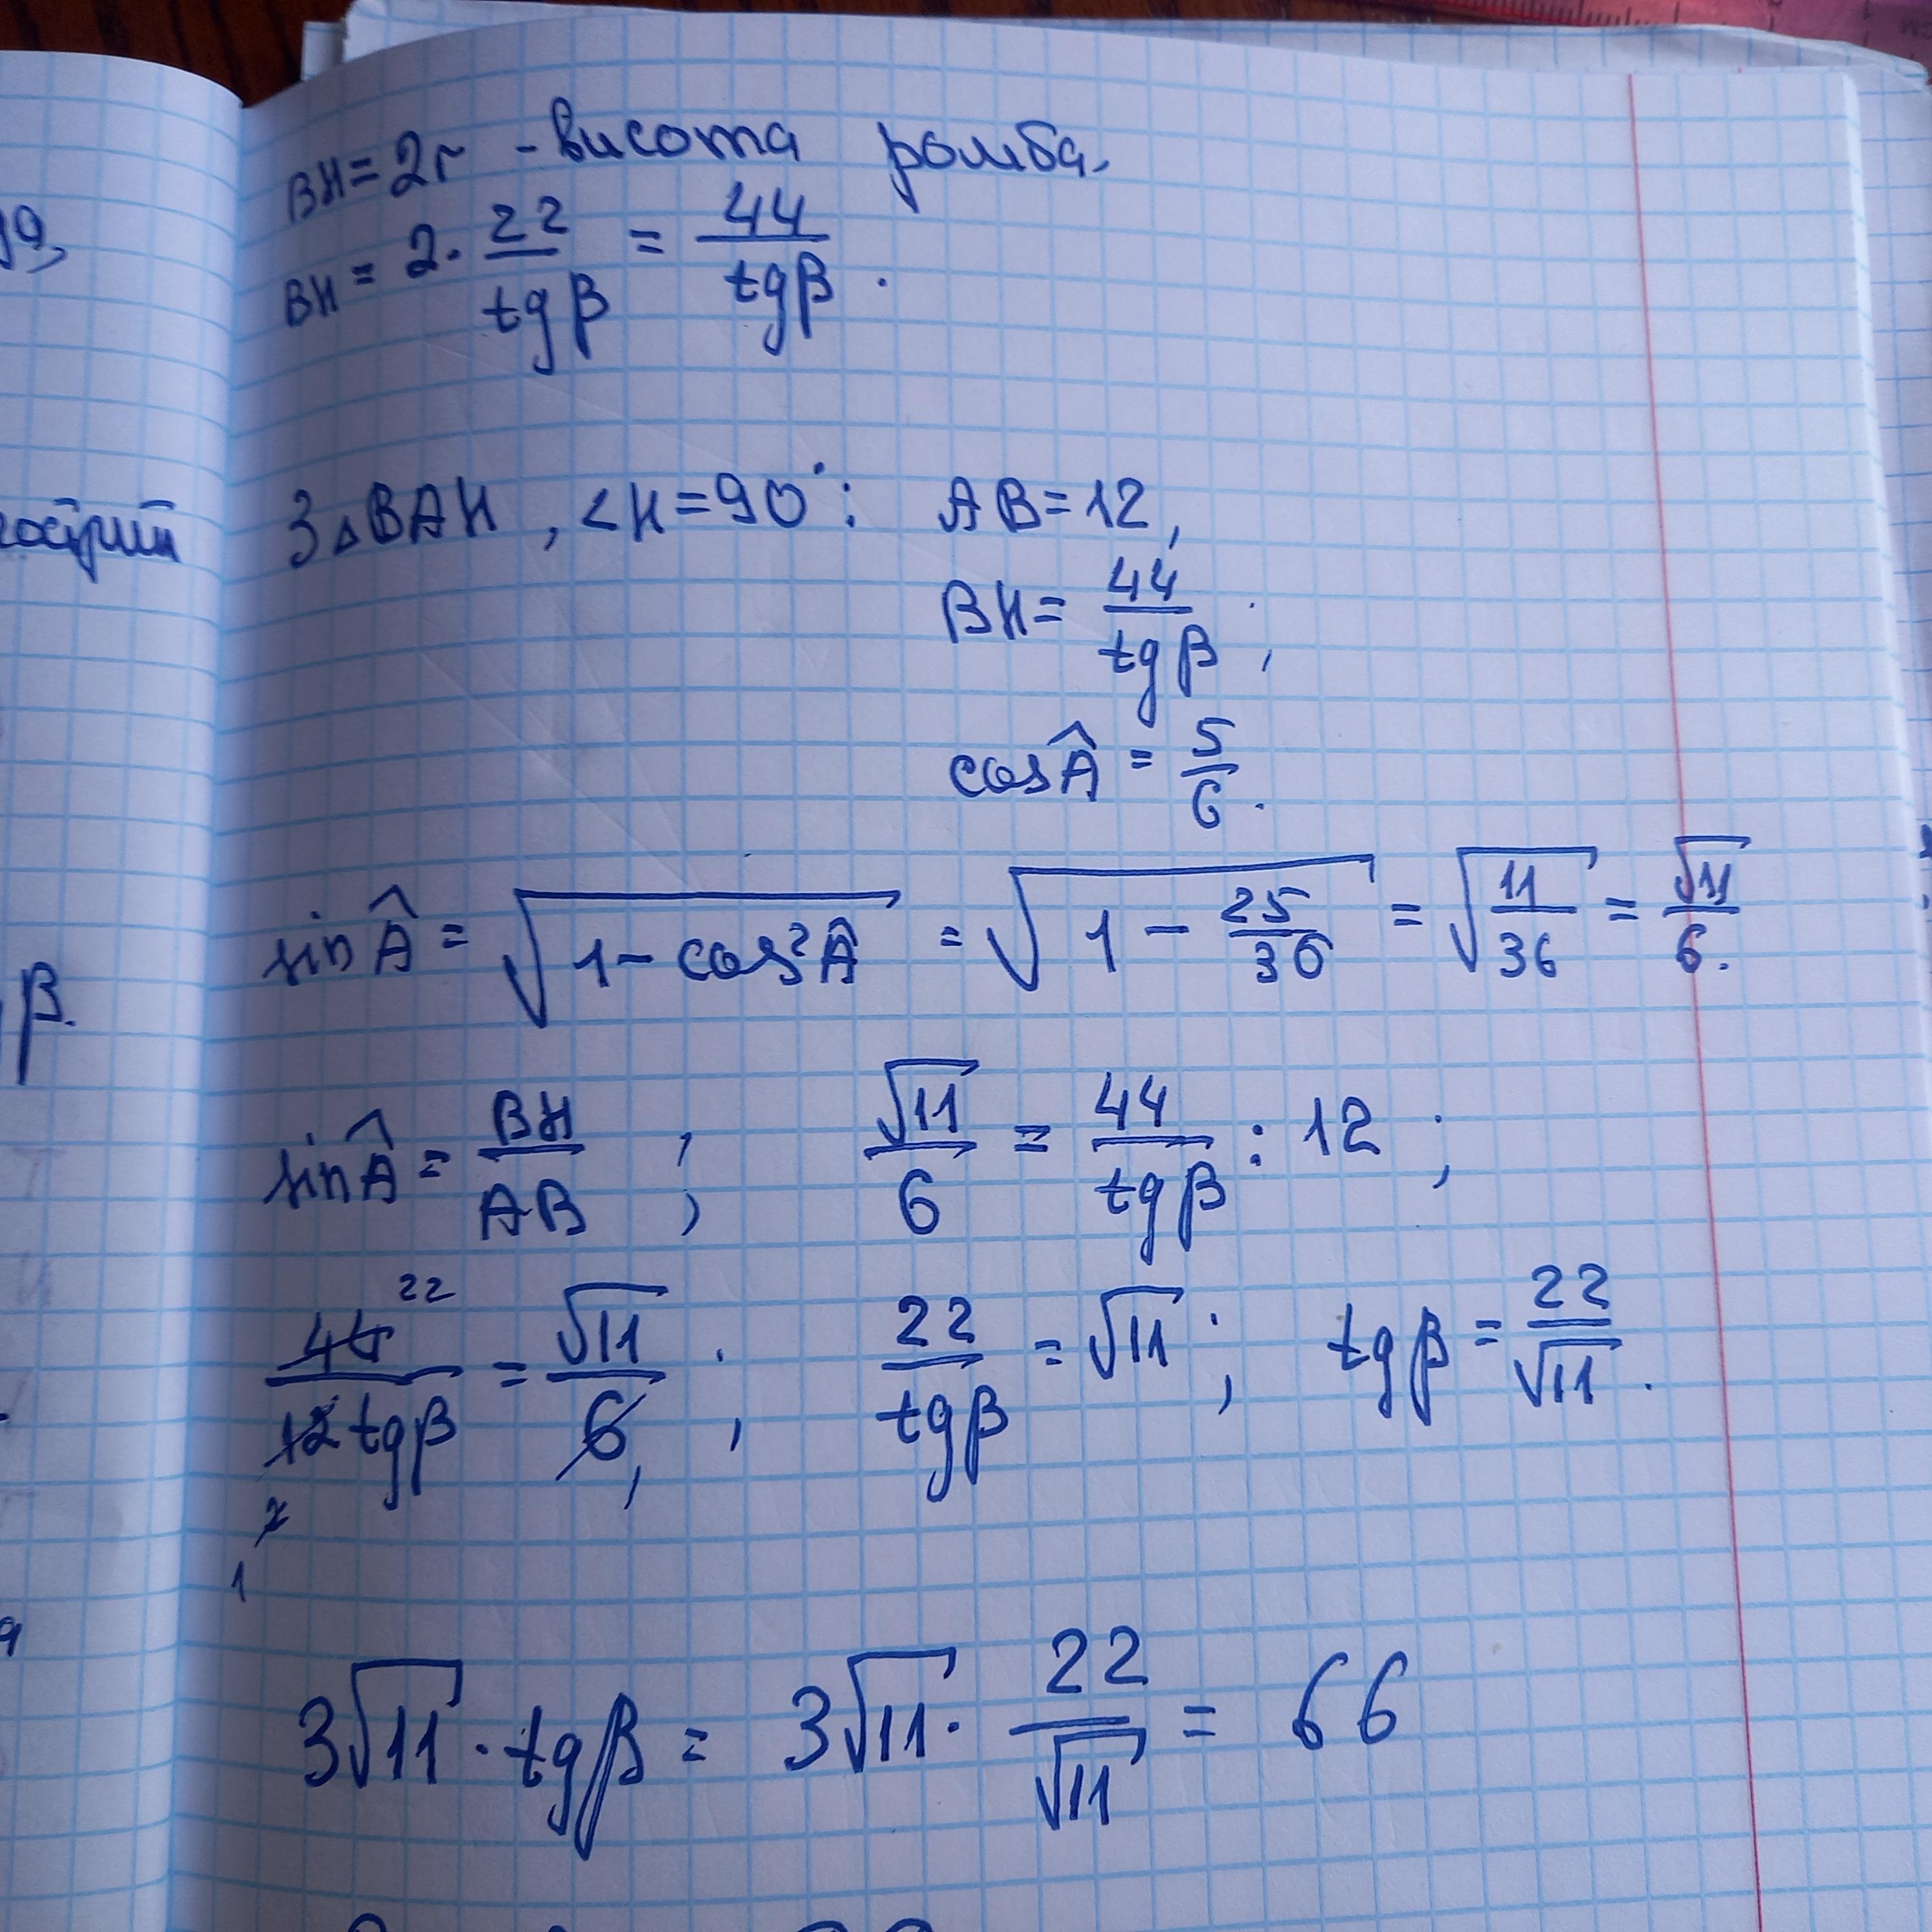 BH = 2r - висота ромба.
BH = 2 · 22/tgβ = 44/tgβ .
З △BAH , ∠H = 90° : AB = 12,
BH = 44/tgβ ,
cosÂ = 5/6 .
sinÂ = √(1 - cos²Â) = √(1 - 25/36) = √(11/36) = √11/6 .
sinÂ = BH/AB ; √11/6 = 44/tgβ : 12 ;
44 22/12 2 1 tgβ = √11/6 ; 22/tgβ = √11 ; tgβ = 22/√11 .
3√11 · tgβ = 3√11 · 22/√11 = 66
β.